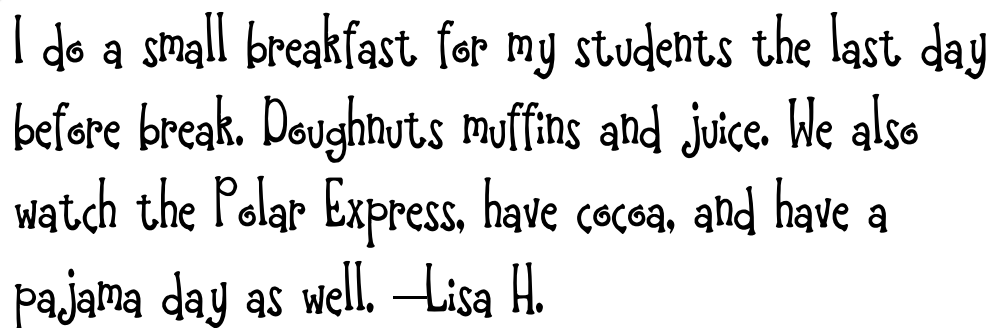 I do a small breakfast for my students the last day
before break. Doughnuts muffins and juice. We also
watch the Polar Express, have cocoa, and have a
pajama day as well. —Lisa H.